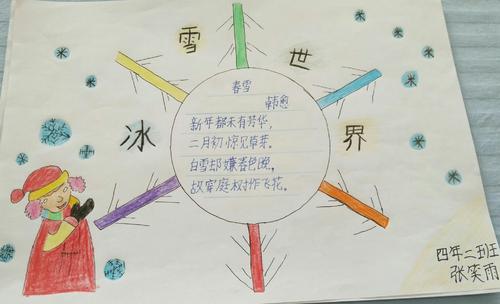 冰雪世界
春雪
韩愈
新年都未有芳华,
二月初惊见草芽。
白雪却嫌春色晚,
故穿庭树作飞花。
四年二班